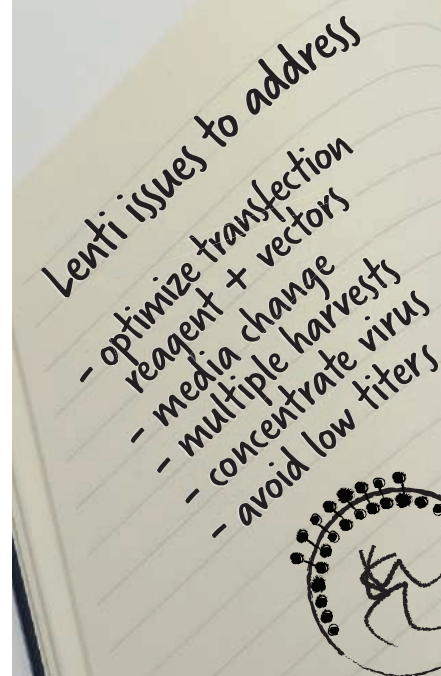 Lenti issues to address
- optimize transfection
reagent + vectors
- media change
- multiple harvests
- concentrate virus
- avoid low titers